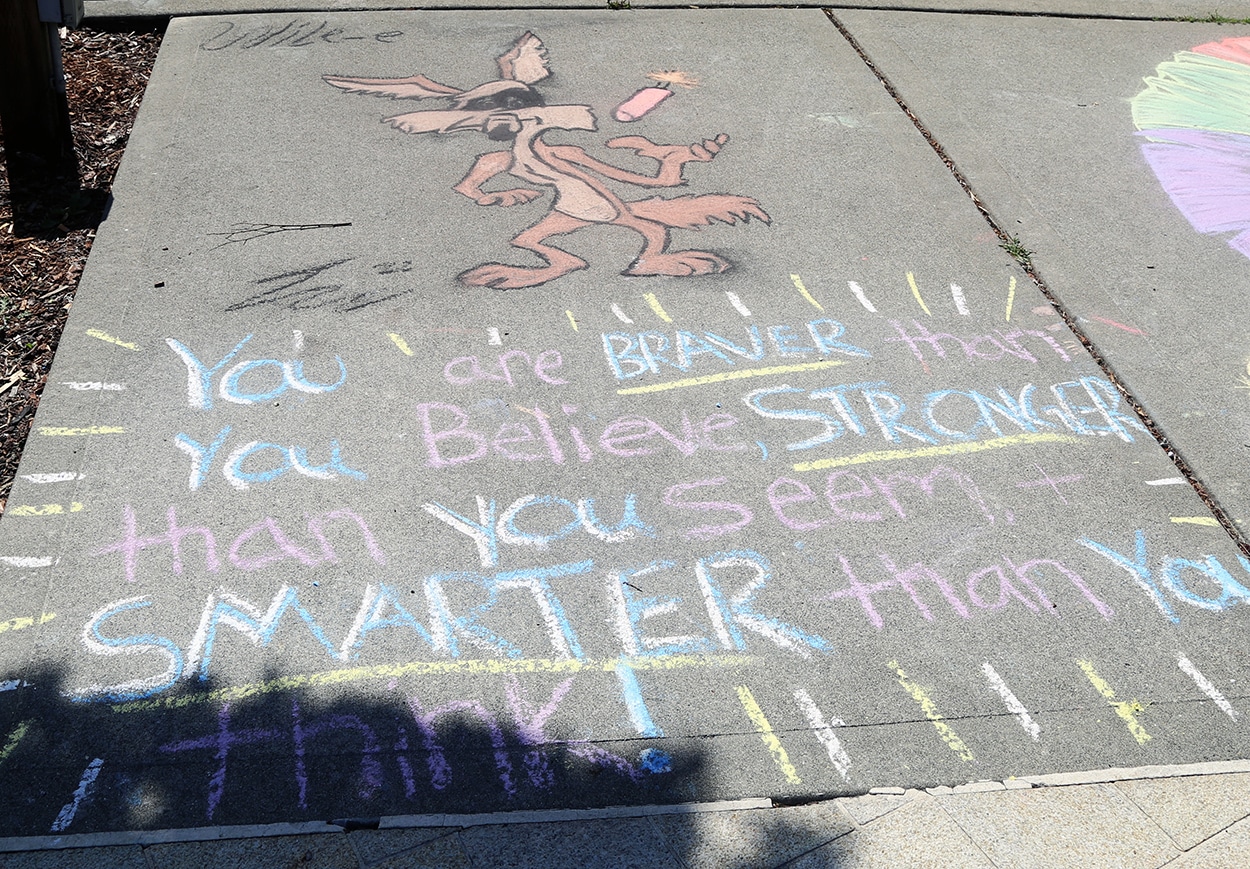 Wile-e
You are BRAVER than
You Believe, STRONGER
than you seem +
SMARTER than You
think!